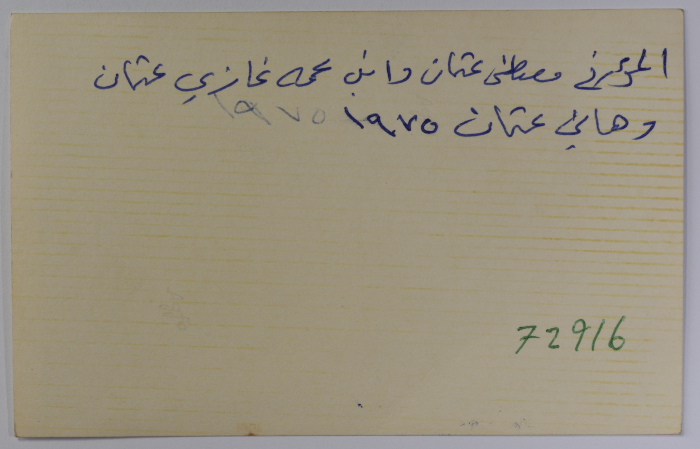 مصطفى عثمان وابن عمه غازي عثمان
وهاني عثمان ١٩٧٥ ١٩٧٥
72916